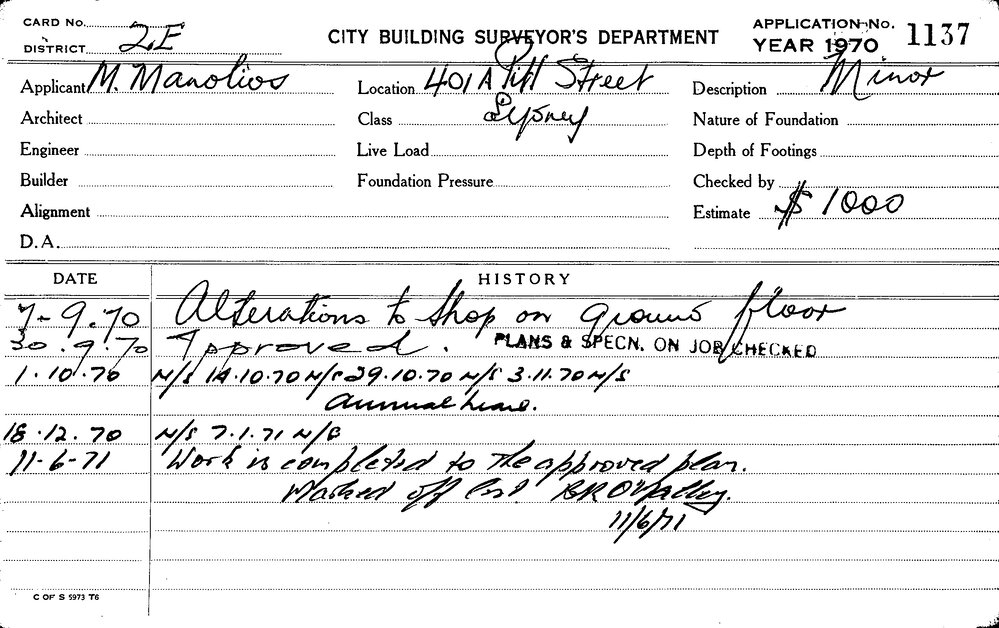 CARD No.
DISTRICT 2E
CITY BUILDING SURVEYOR'S DEPARTMENT
APPLICATION No. 1137
YEAR 1970
Applicant M. Manolios
Location 401A Pitt Street
Description Minor
Architect
Class Sydney
Nature of Foundation
Engineer
Live Load
Depth of Footings
Builder
Foundation Pressure
Checked by
Alignment
Estimate $ 1000
D.A.
DATE HISTORY
7-9.70 Alterations to shop on ground floor
30.9.70 Approved. PLANS & SPECN. ON JOB CHECKED
1.10.70 N/S 14.10.70 N/S 29.10.70 N/S 3.11.70 N/S
Annual leave.
18.12.70 N/S 7.1.71 N/S
11-6-71 Work is completed to the approved plan.
Marked off list
11/6/71
C OF S 5973 T6